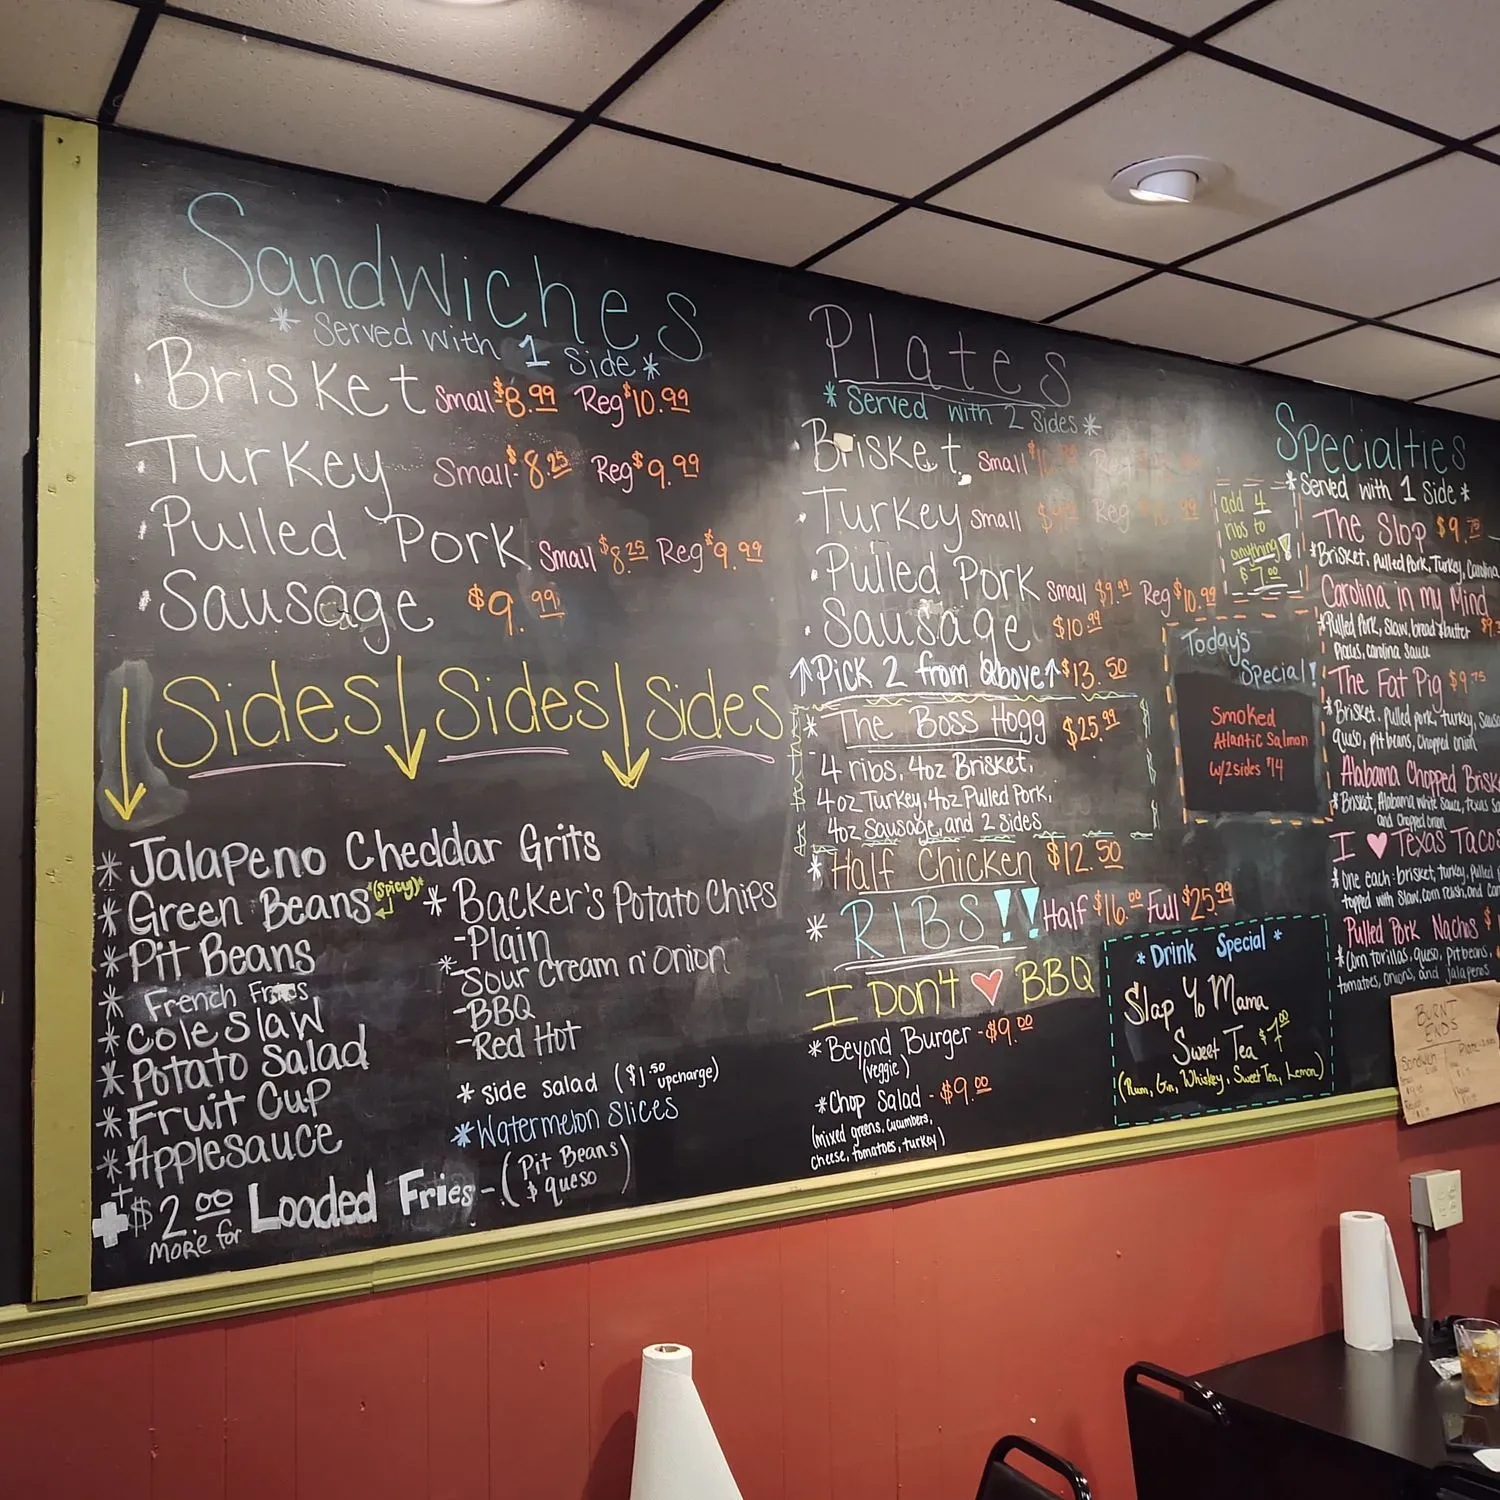 Sandwiches
* Served with 1 Side *
Brisket Small $8.99 Reg $10.99
Turkey Small $8.25 Reg $9.99
Pulled Pork Small $8.25 Reg $9.99
Sausage $9.99
Sides Sides Sides
* Jalapeno Cheddar Grits
* Green Beans *(Spicy)*
* Pit Beans
* French Fries
* Cole Slaw
* Potato Salad
* Fruit Cup
* Applesauce
+ $2.00 more for Loaded Fries - (Pit Beans
$ queso)
* Backer's Potato Chips
- Plain
- Sour Cream n' Onion
- BBQ
- Red Hot
* side salad ($1.50 upcharge)
* Watermelon Slices
Plates
* Served with 2 Sides *
Brisket Small Reg
Turkey Small Reg
Pulled Pork Small $9.99 Reg $10.99
Sausage $10.99
↑ Pick 2 from above ↑ $13.50
* The Boss Hogg $25.99
- 4 ribs, 4oz Brisket,
4oz Turkey, 4oz Pulled Pork,
4oz Sausage, and 2 sides
* Half Chicken $12.50
* RIBS!! Half $16.00 Full $25.99
I Don't ♥ BBQ
* Beyond Burger - $9.00
(veggie)
* Chop Salad - $9.00
(mixed greens, cucumbers,
cheese, tomatoes, turkey)
add 4
ribs to
anything!
$7.00
Today's
Special!
Smoked
Atlantic Salmon
w/2sides $14
* Drink Special *
Slap Yo Mama
Sweet Tea $7.00
(Rum, Gin, Whiskey, Sweet Tea, Lemon)
Specialties
* Served with 1 Side *
The Slop $9.75
* Brisket, Pulled Pork, Turkey, Carolina
Carolina in my Mind
* Pulled Pork, Slaw, bread & butter
Pickles, carolina sauce
The Fat Pig $9.75
* Brisket, pulled pork, turkey,
queso, pit beans, chopped onion
Alabama Chopped
* Brisket, Alabama white sauce, texas
and chopped onion
I ♥ Texas Tacos
* One each: brisket, turkey, pulled
topped with slaw, corn relish, and
Pulled Pork Nachos $
* Corn torillas, queso, pit beans,
tomatoes, onions, and jalapenos
BURNT
ENDS
Sandwich